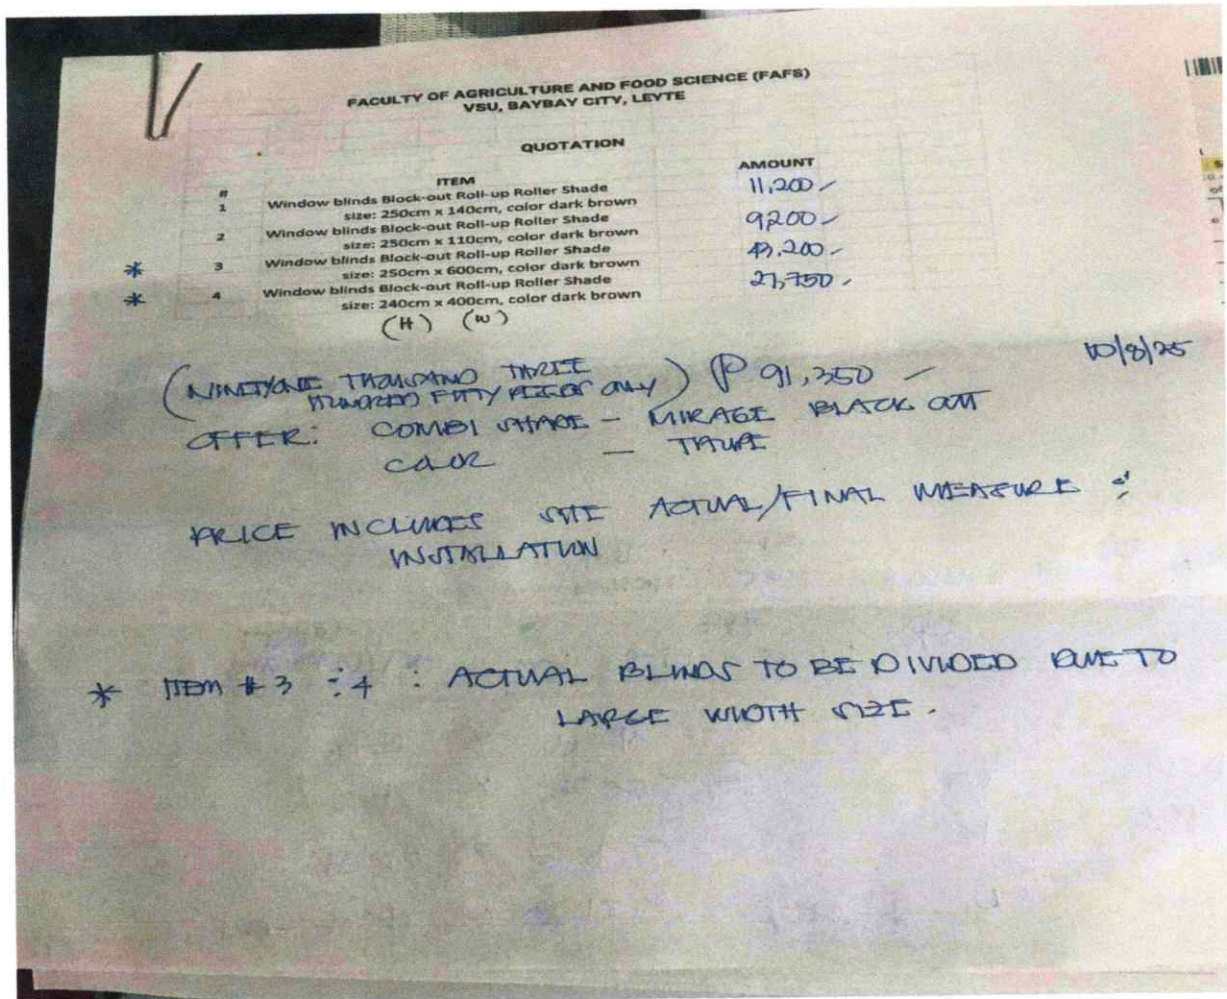 FACULTY OF AGRICULTURE AND FOOD SCIENCE (FAFS)
VSU, BAYBAY CITY, LEYTE
QUOTATION
# ITEM AMOUNT
1 Window blinds Block-out Roll-up Roller Shade 11,200-
size: 250cm x 140cm, color dark brown
2 Window blinds Block-out Roll-up Roller Shade 9200-
size: 250cm x 110cm, color dark brown
* 3 Window blinds Block-out Roll-up Roller Shade 43,200-
size: 250cm x 600cm, color dark brown
* 4 Window blinds Block-out Roll-up Roller Shade 27,750-
size: 240cm x 400cm, color dark brown
(H) (W)
10/8/25
(NINETYONE THOUSAND THREE
HUNDRED FIFTY PESOS ONLY) ₱ 91,350 -
OFFER: COMBI SHADE - MIRAGE BLACK OUT
COLOR - TAUPE
PRICE INCLUDES SITE ACTUAL/FINAL MEASURE &
INSTALLATION
* ITEM # 3 & 4 : ACTUAL BLINDS TO BE DIVIDED DUE TO
LARGE WIDTH SIZE.